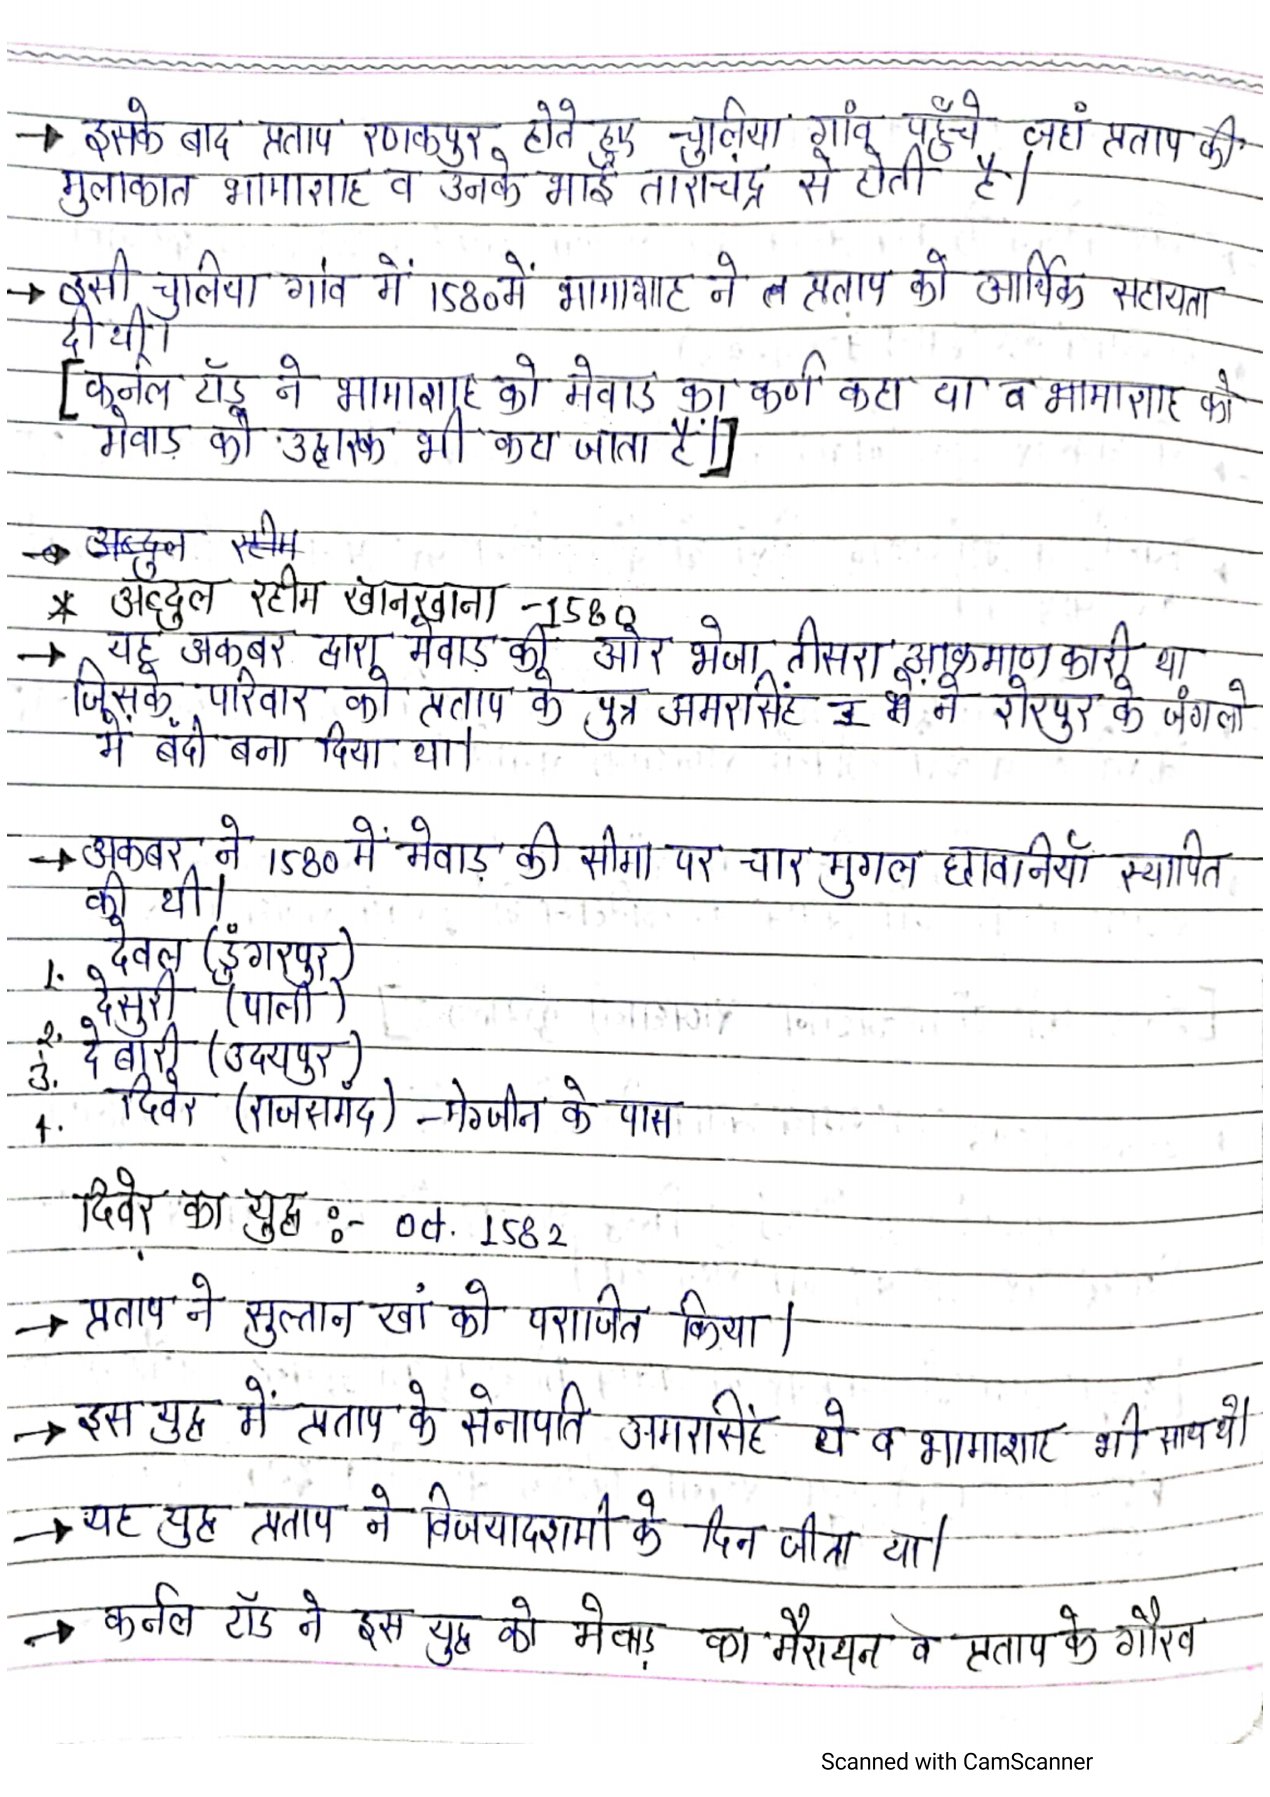 → इसके बाद प्रताप रणकपुर होते हुए चुलिया गांव पहुँचे जहां प्रताप की
मुलाकात भामाशाह व उनके भाई ताराचंद्र से होती है।
→ इसी चुलिया गांव में 1580 में भामाशाह ने प्रताप को आर्थिक सहायता
दी थी।
[कर्नल टॉड ने भामाशाह को मेवाड़ का कर्ण कहा था व भामाशाह को
मेवाड़ को उद्धारक भी कहा जाता है।]
→ अब्दुल रहीम
* अब्दुल रहीम खानखाना - 1580
→ यह अकबर द्वारा मेवाड़ की ओर भेजा तीसरा आक्रमाण कारी था
जिसके परिवार को प्रताप के पुत्र अमरसिंह I ने शेरपुर के जंगलो
में बंदी बना दिया था।
→ अकबर ने 1580 में मेवाड़ की सीमा पर चार मुगल छावनियाँ स्थापित
की थी।
1. देवल (डुंगरपुर)
2. देसुरी (पाली)
3. देबारी (उदयपुर)
4. दिवेर (राजसमंद) - मेग्जीन के पास
दिवेर का युद्ध :- Oct. 1582
→ प्रताप ने सुल्तान खां को पराजित किया।
→ इस युद्ध में प्रताप के सेनापति अमरसिंह थे व भामाशाह भी साथ थे।
→ यह युद्ध प्रताप ने विजयादशमी के दिन जीता था।
→ कर्नल टॉड ने इस युद्ध को मेवाड़ का मैराथन व प्रताप के गौरव
Scanned with CamScanner